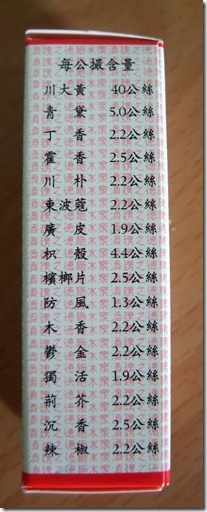 每公撮含量
川大黃 40公絲
青黛 5.0公絲
丁香 2.2公絲
霍香 2.5公絲
川朴 2.2公絲
東波蔻 2.2公絲
廣皮 1.9公絲
枳殼 4.4公絲
檳榔片 2.5公絲
防風 1.3公絲
木香 2.2公絲
鬱金 2.2公絲
獨活 1.9公絲
荊芥 2.2公絲
沉香 2.5公絲
辣椒 2.2公絲